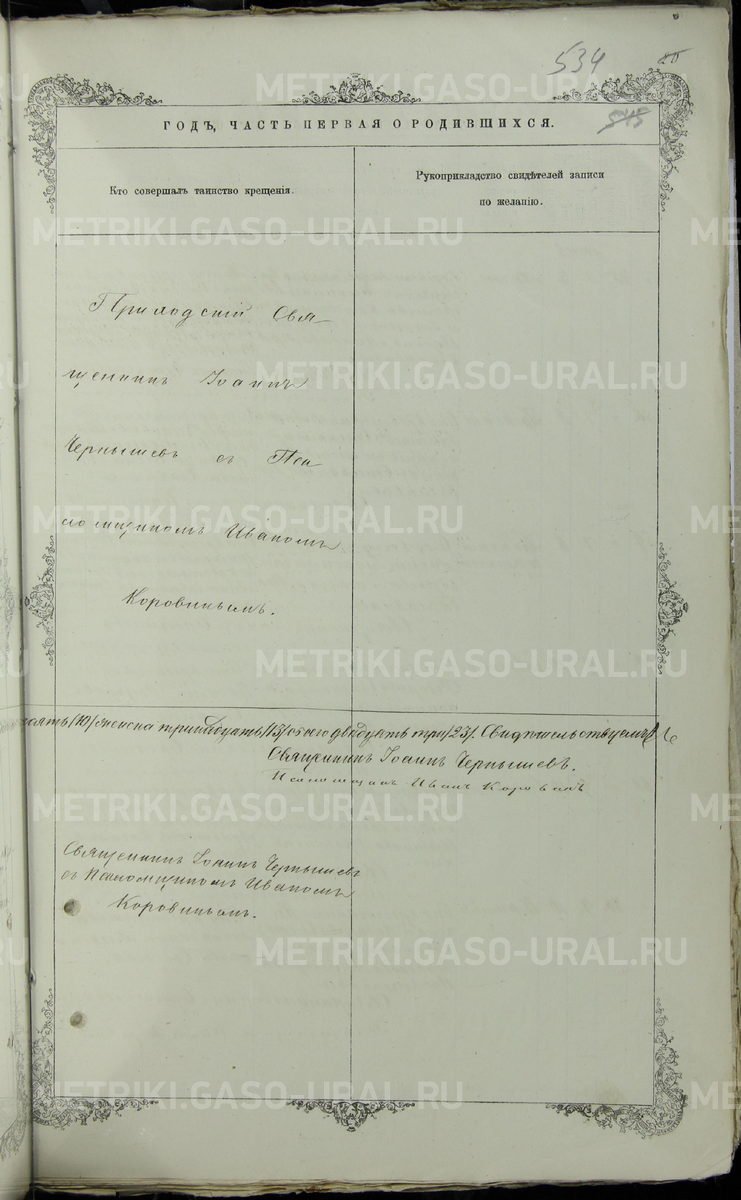 534
545
ГОДЪ, ЧАСТЬ ПЕРВАЯ О РОДИВШИХСЯ.
Кто совершалъ таинство крещенія.
Рукоприкладство свидѣтелей записи
по желанію.
Приходскій Свя
щенникъ Іоаннъ
Чернышевъ съ Пса
ломщикомъ Иваномъ
Коровинымъ.
/10/ женска тринадцать /13/ обоего двадцать три /23/. Свидѣтельствуемъ
Священникъ Іоаннъ Чернышевъ.
Псаломщикъ Иванъ Коровинъ
Священникъ Іоаннъ Чернышевъ
съ Псаломщикомъ Иваномъ
Коровинымъ.
METRIKI.GASO-URAL.RU